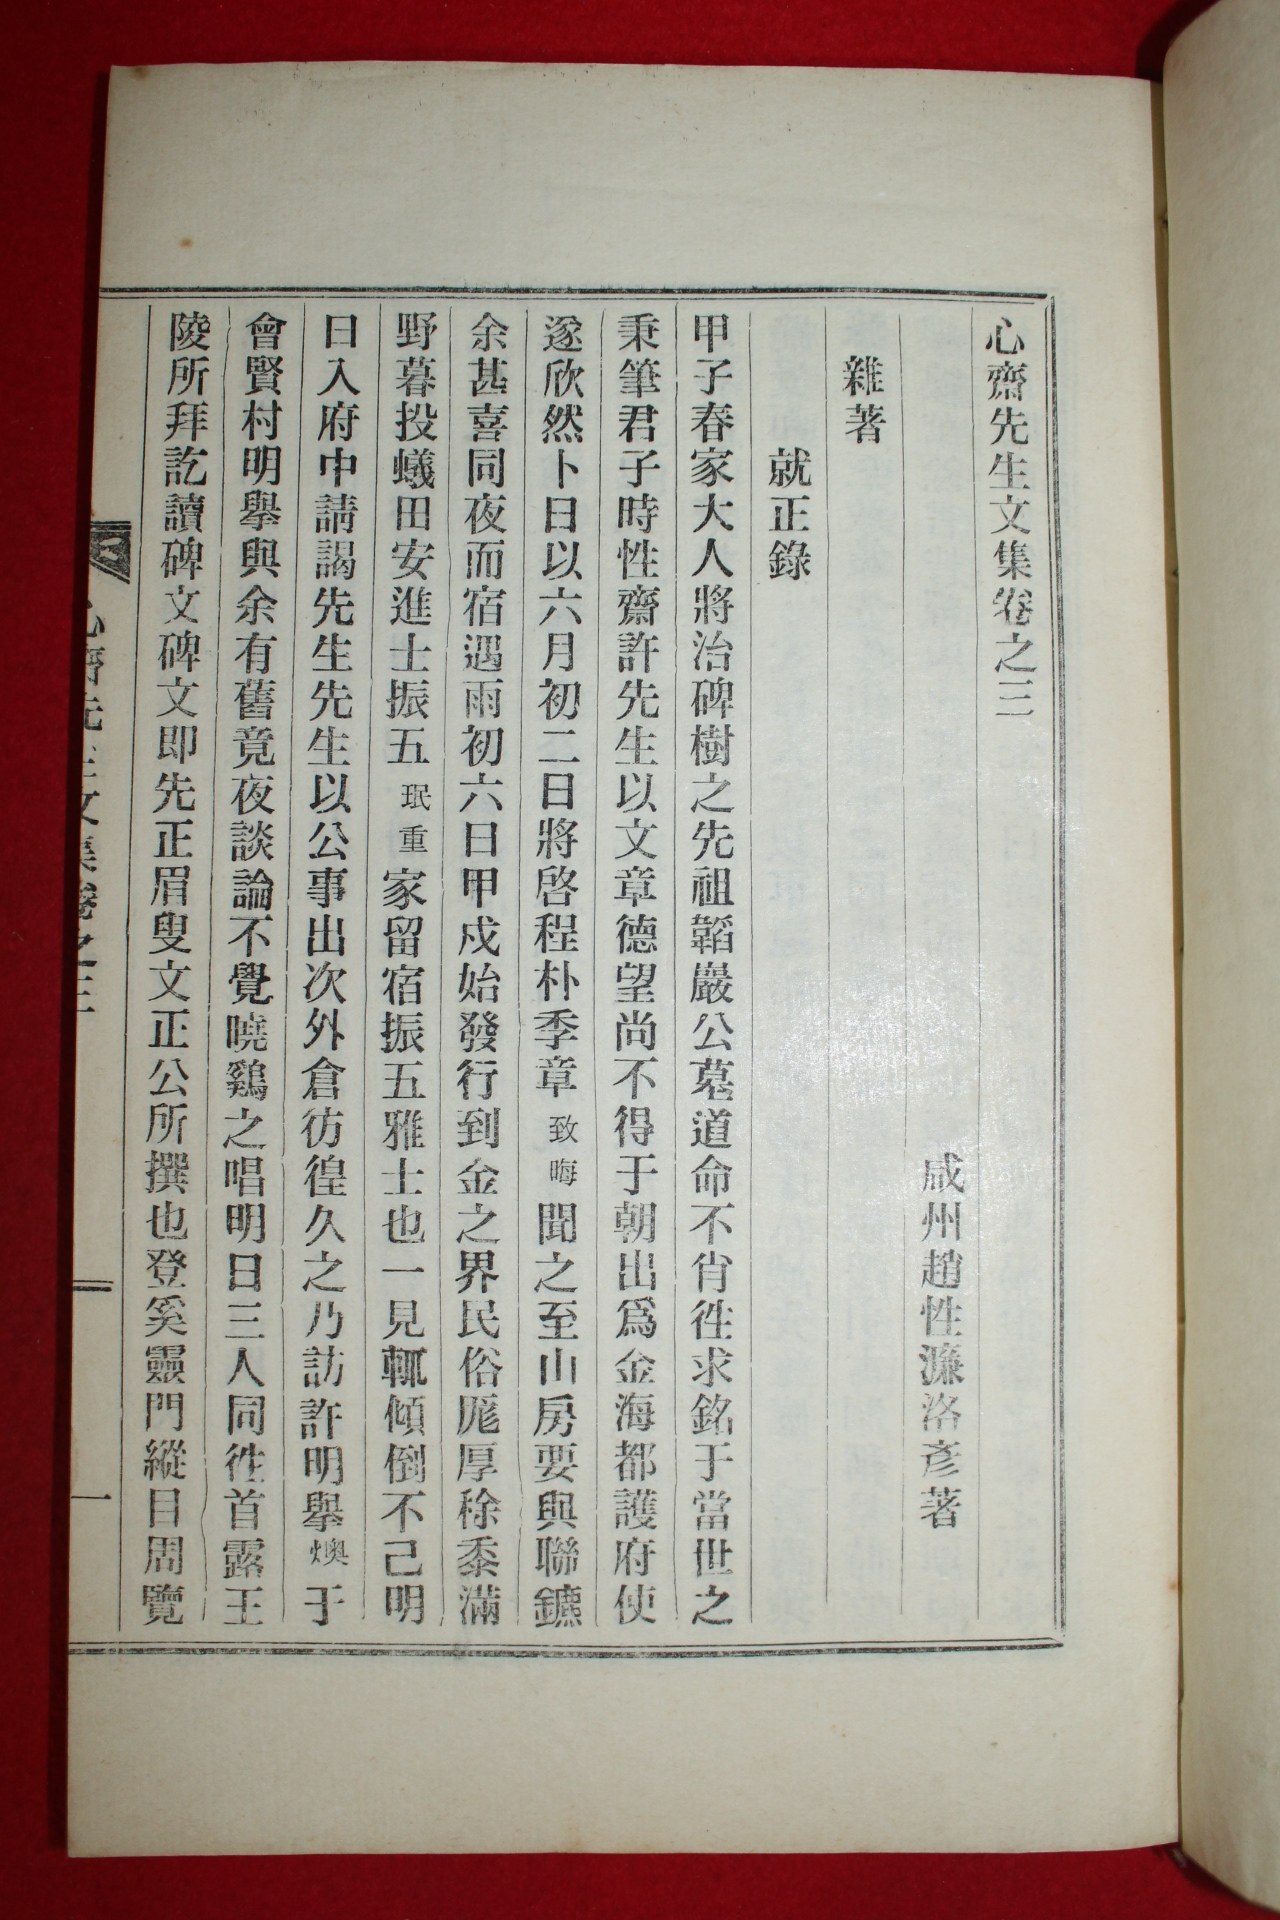 心齋先生文集卷之三
咸州趙性濂洛彥著
雜著
就正錄
甲子春家大人將治碑樹之先祖韜巖公墓道命不肖徃求銘于當世之
秉筆君子時性齋許先生以文章德望尚不得于朝出爲金海都護府使
遂欣然卜日以六月初二日將啓程朴季章致晦聞之至山房要與聯鑣
余甚喜同夜而宿遇雨初六日甲戍始發行到金之界民俗厖厚稌黍滿
野暮投蟻田安進士振五珉重家留宿振五雅士也一見輒傾倒不己明
日入府中請謁先生先生以公事出次外倉彷徨久之乃訪許明擧燠于
會賢村明擧與余有舊竟夜談論不覺曉鷄之唱明日三人同徃首露王
陵所拜訖讀碑文碑文即先正眉叟文正公所撰也登奚靈門縱目周覽
心齋先生文集卷之三
一